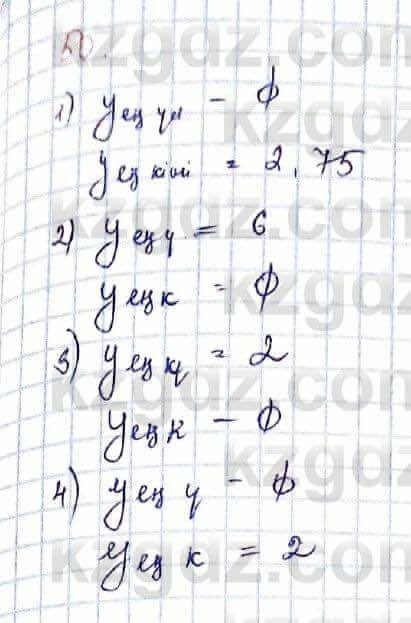 1) y ең үл – ф
y ең кіші = 2,75
2) y ең ү = 6
y ең к = ф
3) y ең ү = 2
y ең к – ф
4) y ең ү – ф
y ең к = 2
kzgdz.com